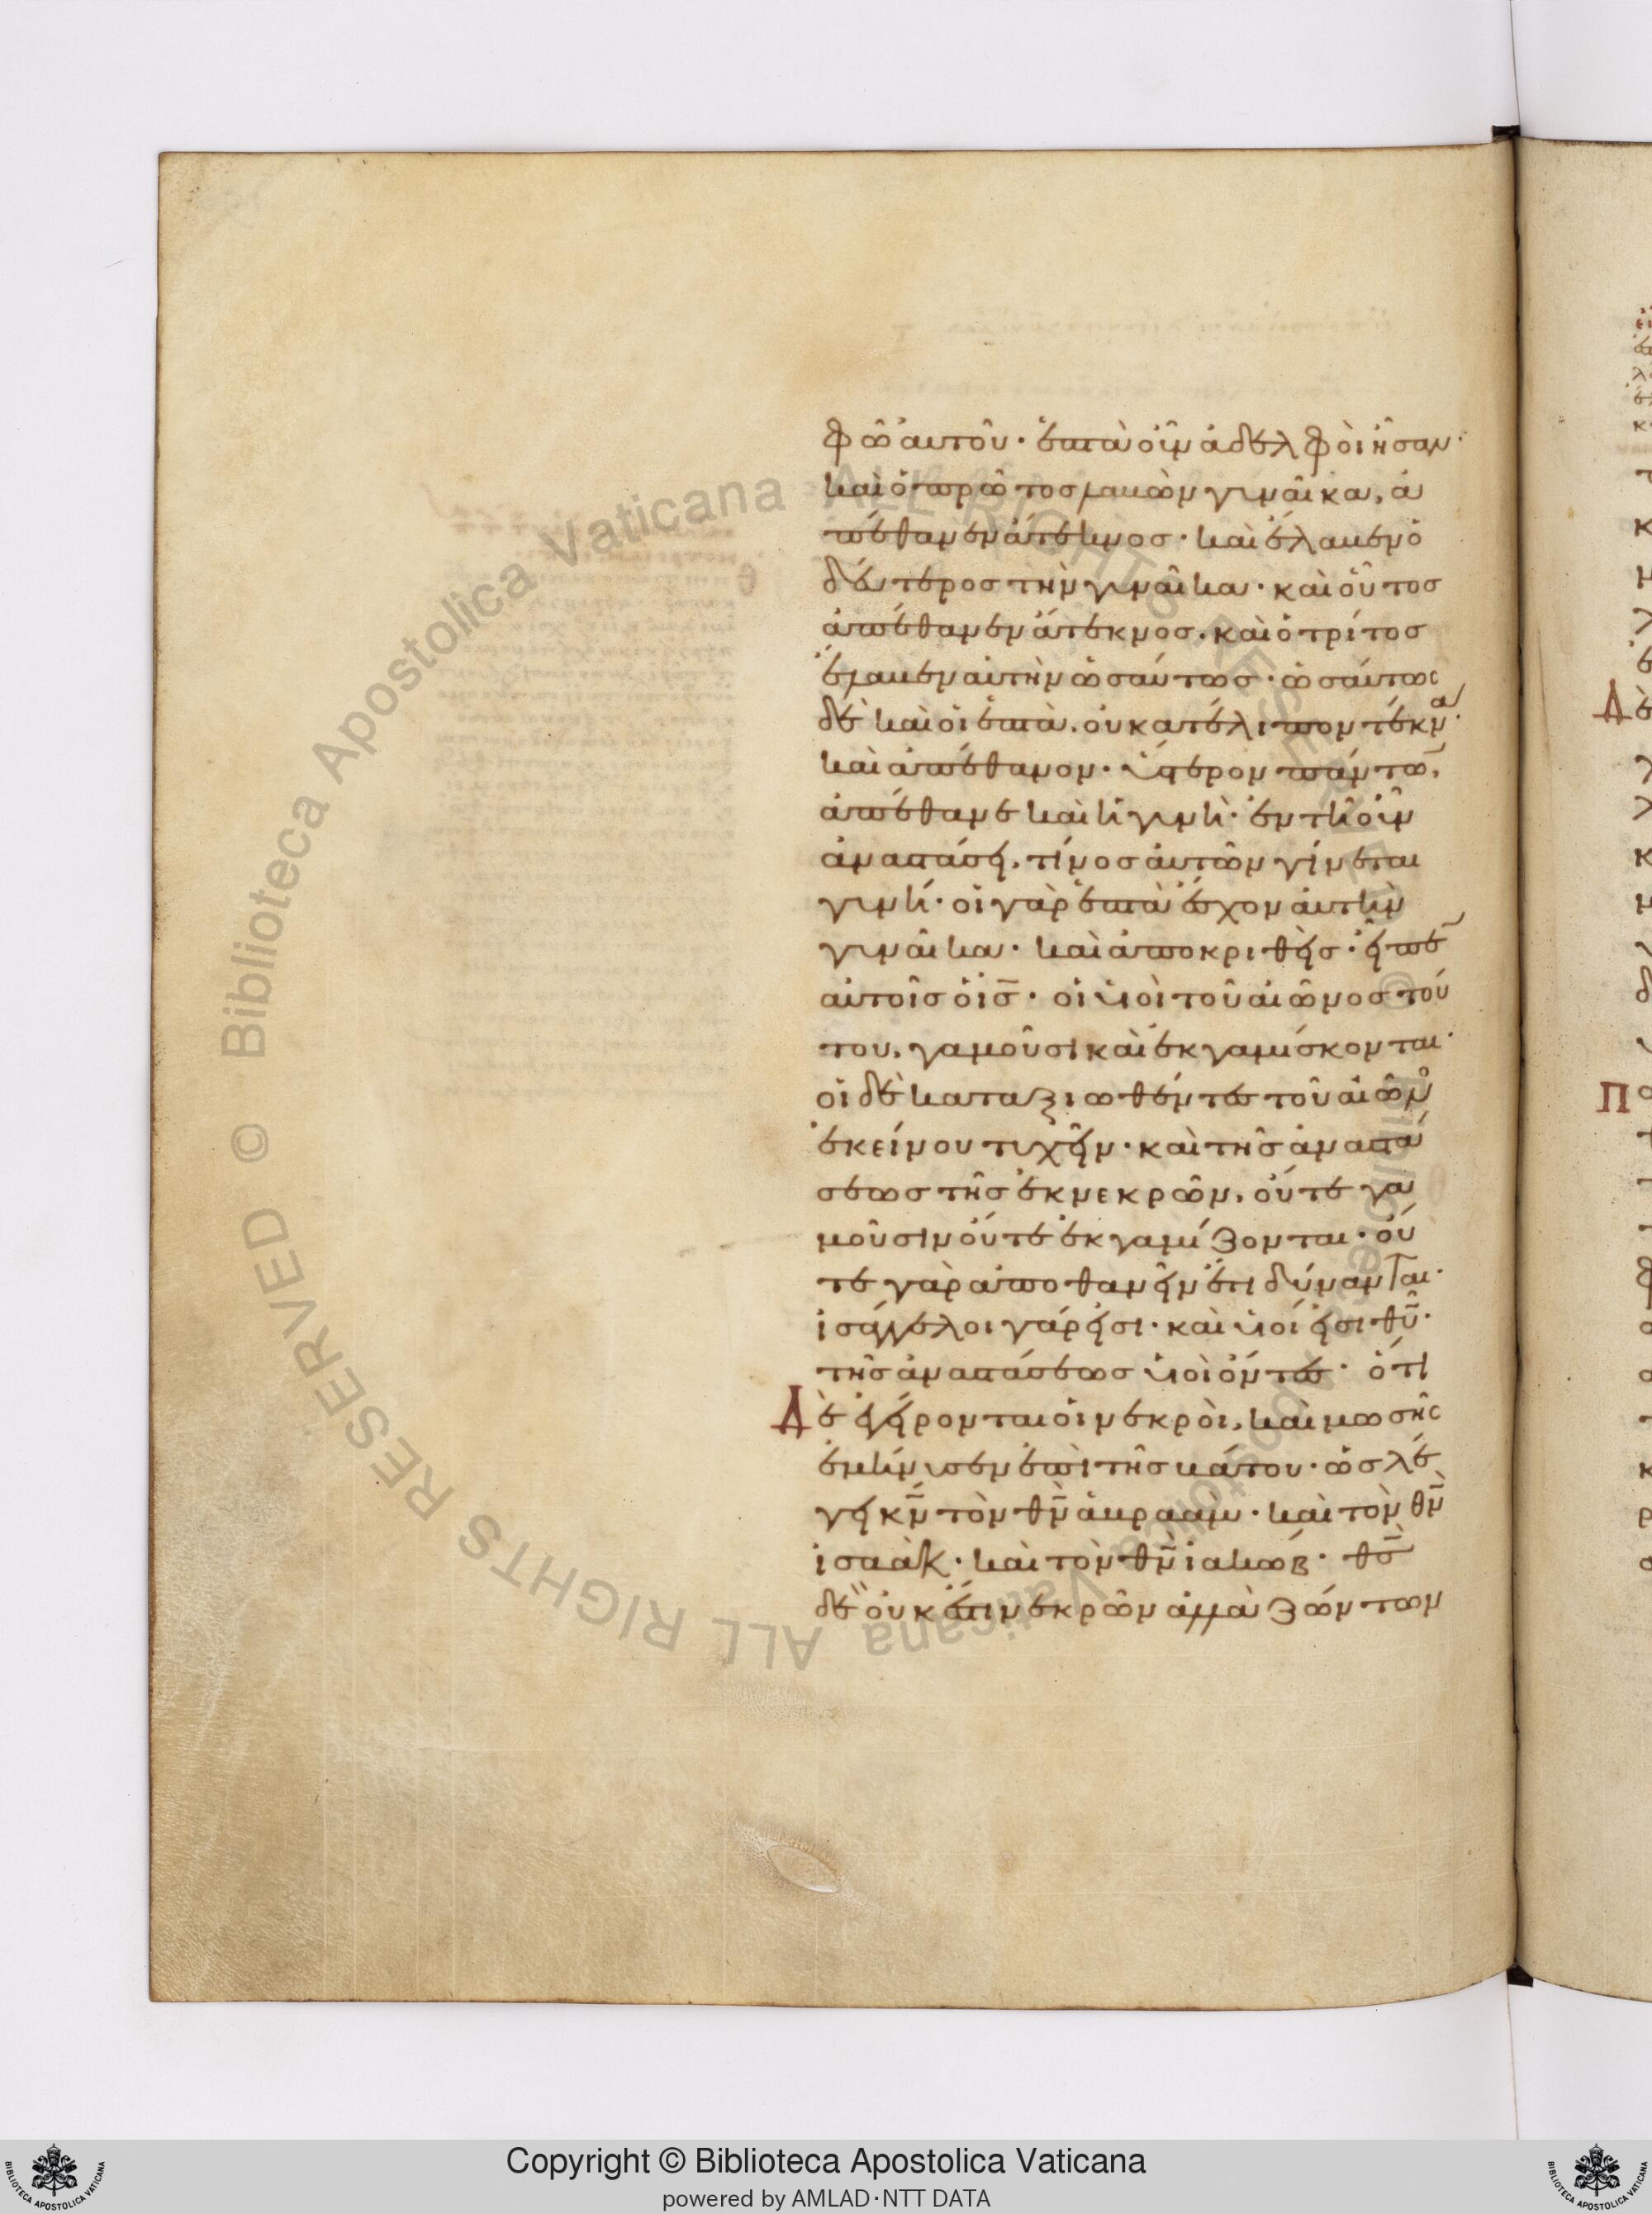 φῶ αὐτοῦ· ἑπτὰ οὖν ἀδελφοὶ ἦσαν·
καὶ ὁ πρῶτος λαβὼν γυναῖκα, ἀ
πέθανεν ἄτεκνος· καὶ ἔλαβεν ὁ
δεύτερος τὴν γυναῖκα· καὶ οὗτος
ἀπέθανεν ἄτεκνος. καὶ ὁ τρίτος
ἔλαβεν αὐτὴν ὡσαύτως· ὡσαύτως
δὲ καὶ οἱ ἑπτὰ. οὐ κατέλιπον τέκνα·
καὶ ἀπέθανον· ὕστερον πάντω̄,
ἀπέθανε καὶ ἡ γυνὴ· ἐν τῆ οὖν
ἀναστάσει, τίνος αὐτῶν γίνεται
γυνή· οἱ γὰρ ἑπτὰ ἔσχον αὐτὴν
γυναῖκα· καὶ ἀποκριθεὶς· εἶπε̄
αὐτοῖς ὁ ις̄· οἱ υἱοὶ τοῦ αἰῶνος τού
του, γαμοῦσι καὶ ἐκγαμίσκονται·
οἱ δὲ καταξιωθέντες τοῦ αἰῶνο
ἐκείνου τυχεῖν· καὶ τῆς ἀναστά
σεως τῆς ἐκ νεκρῶν, οὔτε γα
μοῦσιν οὔτε ἐκγαμίζονται· οὔ
τε γὰρ ἀποθανεῖν ἔτι δύνανται·
ἰσάγγελοι γάρ εἰσι· καὶ υἱοί εἰσι θῦ·
τῆς ἀναστάσεως υἱοὶ ὄντες· ὅτι
Δὲ ἐγείρονται οἱ νεκροὶ, καὶ μωσῆς
ἐμήνυσεν ἐπὶ τῆς βάτου· ὡς λέ
γει κν̄ τὸν θν̄ ἀβραὰμ· καὶ τὸν θν̄
ἰσαὰκ· καὶ τὸν θν̄ ἰακώβ· θς̄
δὲ οὐκ ἔστι νεκρῶν ἀλλὰ ζώντων
Copyright © Biblioteca Apostolica Vaticana
powered by AMLAD·NTT DATA
© Biblioteca Apostolica Vaticana ALL RIGHTS RESERVED
© Biblioteca Apostolica Vaticana ALL RIGHTS RESERVED